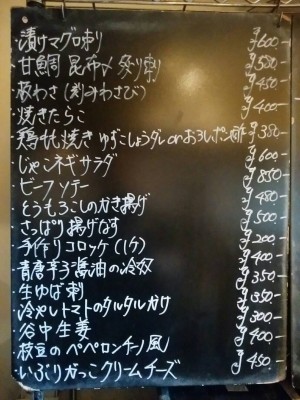 ・漬けマグロ刺 ¥600-
・甘鯛 昆布〆炙り刺 ¥580-
・板わさ(刻みわさび) ¥450-
・焼きたらこ ¥400-
・鶏もも焼き ゆずこしょうダレorおろしポン酢 ¥380-
・じゃこネギサラダ ¥600-
・ビーフソテー ¥850-
・とうもろこしのかき揚げ ¥480-
・さっぱり揚げなす ¥500-
・手作りコロッケ(1ケ) ¥200-
・青唐辛子醤油の冷奴 ¥400-
・生ゆば刺 ¥350-
・冷やしトマトのタルタルがけ ¥350-
・谷中生姜 ¥300-
・枝豆のペペロンチーノ風 ¥400-
・いぶりがっこクリームチーズ ¥450-